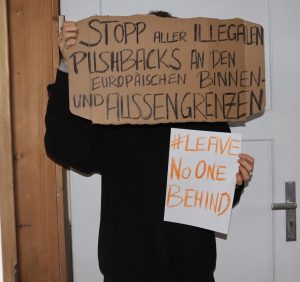 STOPP ALLER ILLEGALEN
PUSHBACKS AN DEN
EUROPÄISCHEN BINNEN-
UND AUSSENGRENZEN
#LEAVE
NO ONE
BEHIND